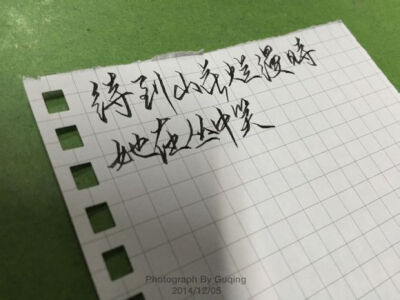 待到山花烂漫時
她在丛中笑
Photograph By Guqing
2014/12/05